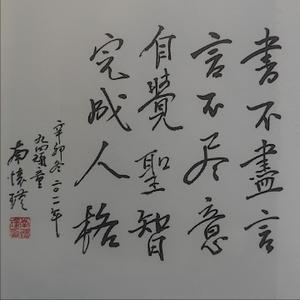 書不盡言
言不尽意
自覺聖智
完成人格
辛卯冬二〇一一年
九四頑童
南懷瑾